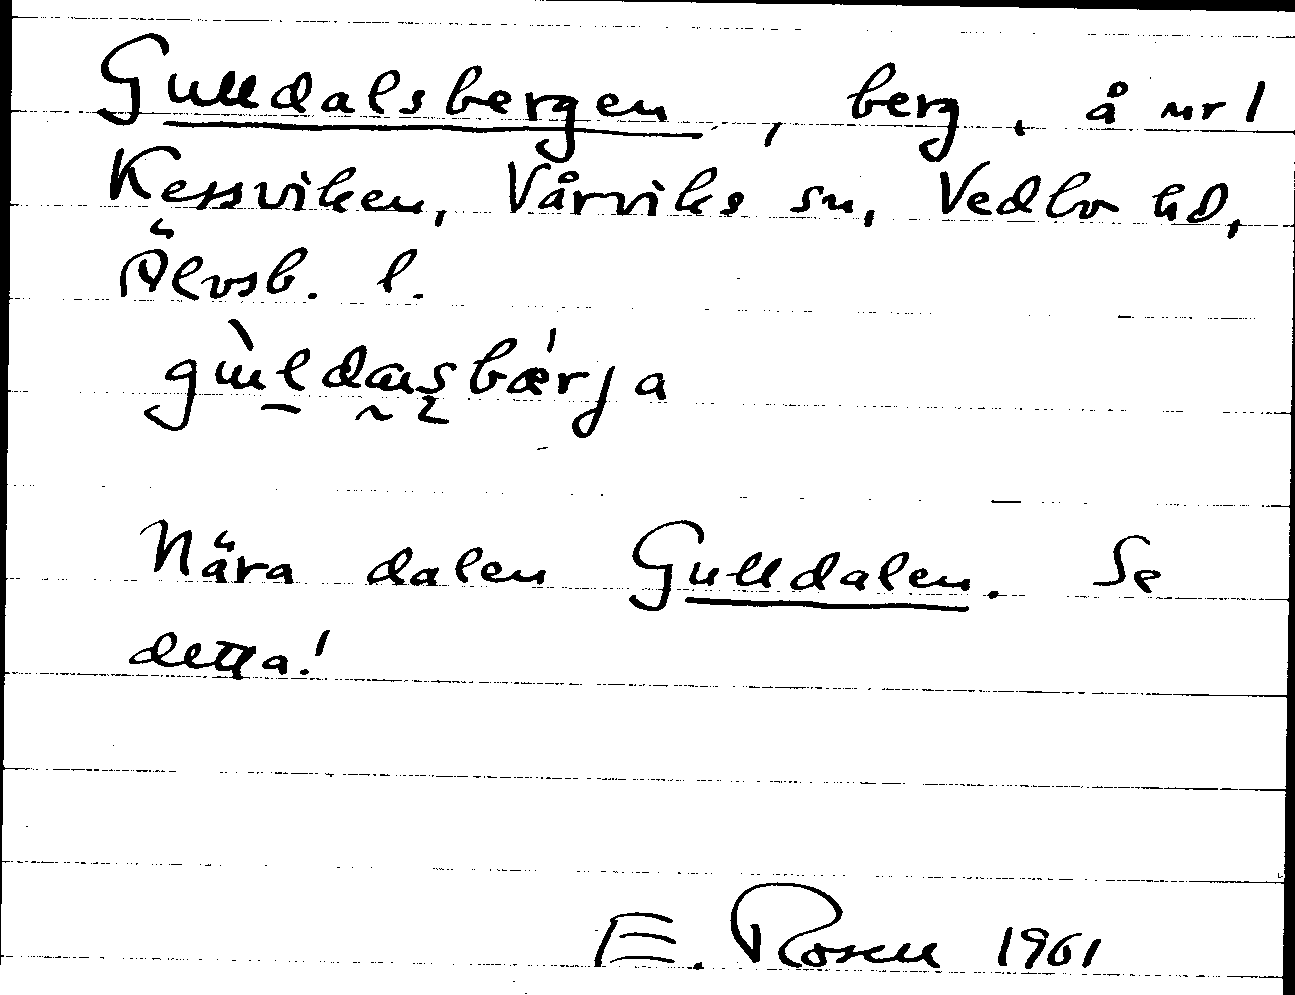 Gulldalsbergen, berg, å nr 1
Kessviken, Vårviks sn, Vedbo hd,
Älvsb. l.
Nära dalen Gulldalen. Se
detta!
E. Rosen 1961